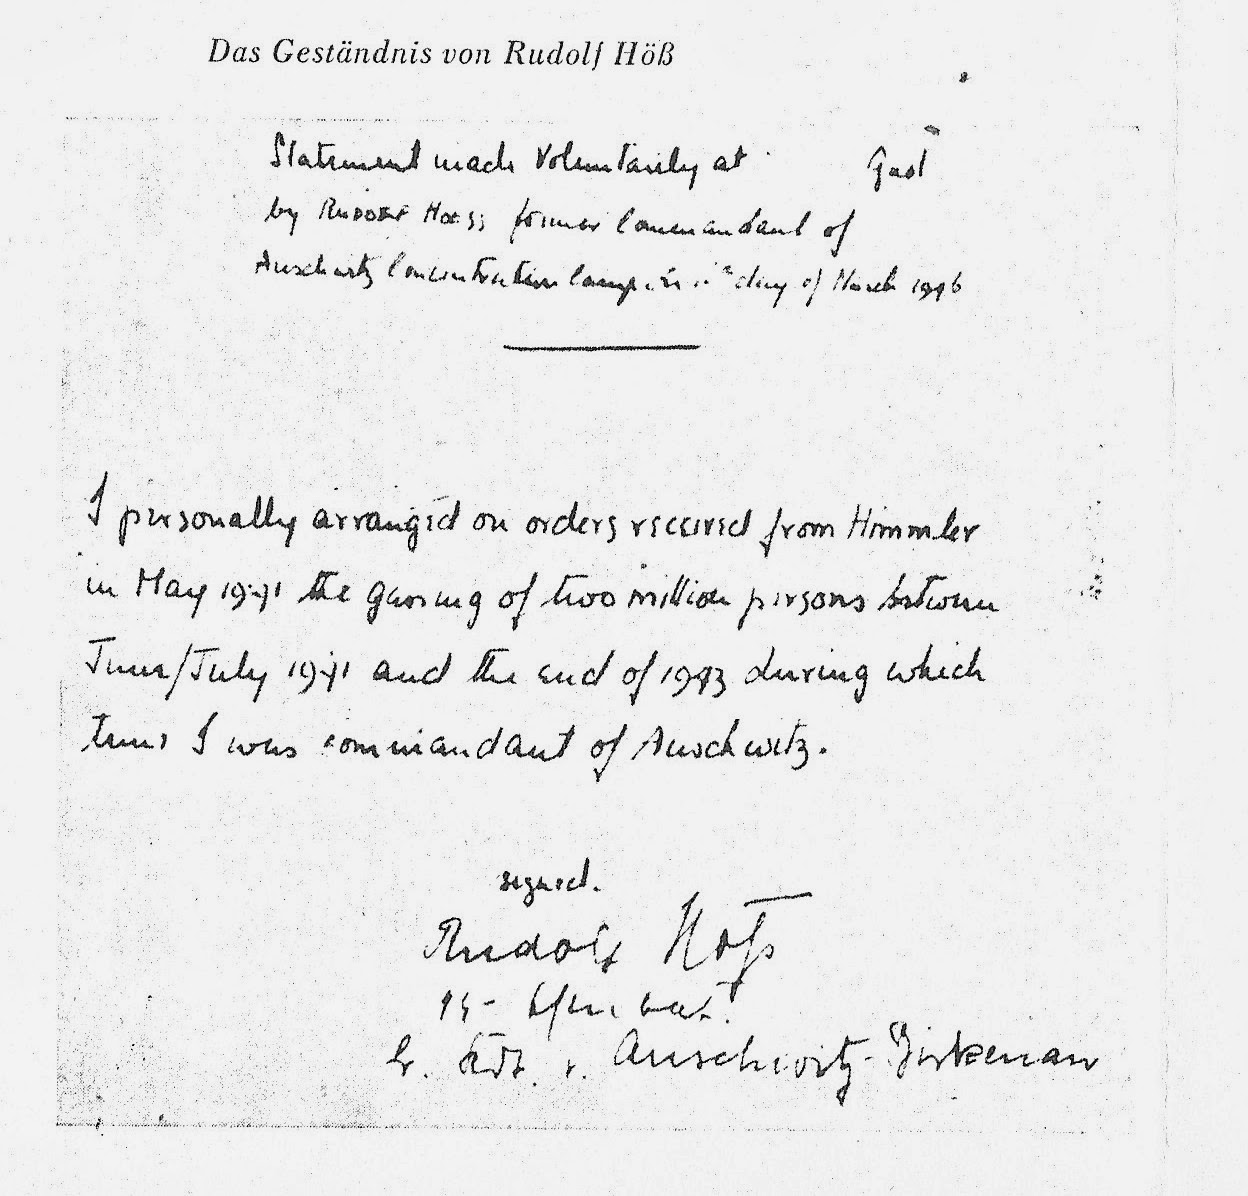 Das Geständnis von Rudolf Höß
Statement made voluntarily at Gaol
by RUDOLF HOESS former Commandant of
Auschwitz Concentration Camp day of March 1946
I personally arranged on orders received from Himmler
in May 1941 the gassing of two million persons between
June/July 1941 and the end of 1943 during which
time I was commandant of Auschwitz.
signed.
Rudolf Höß
Auschwitz-Birkenau